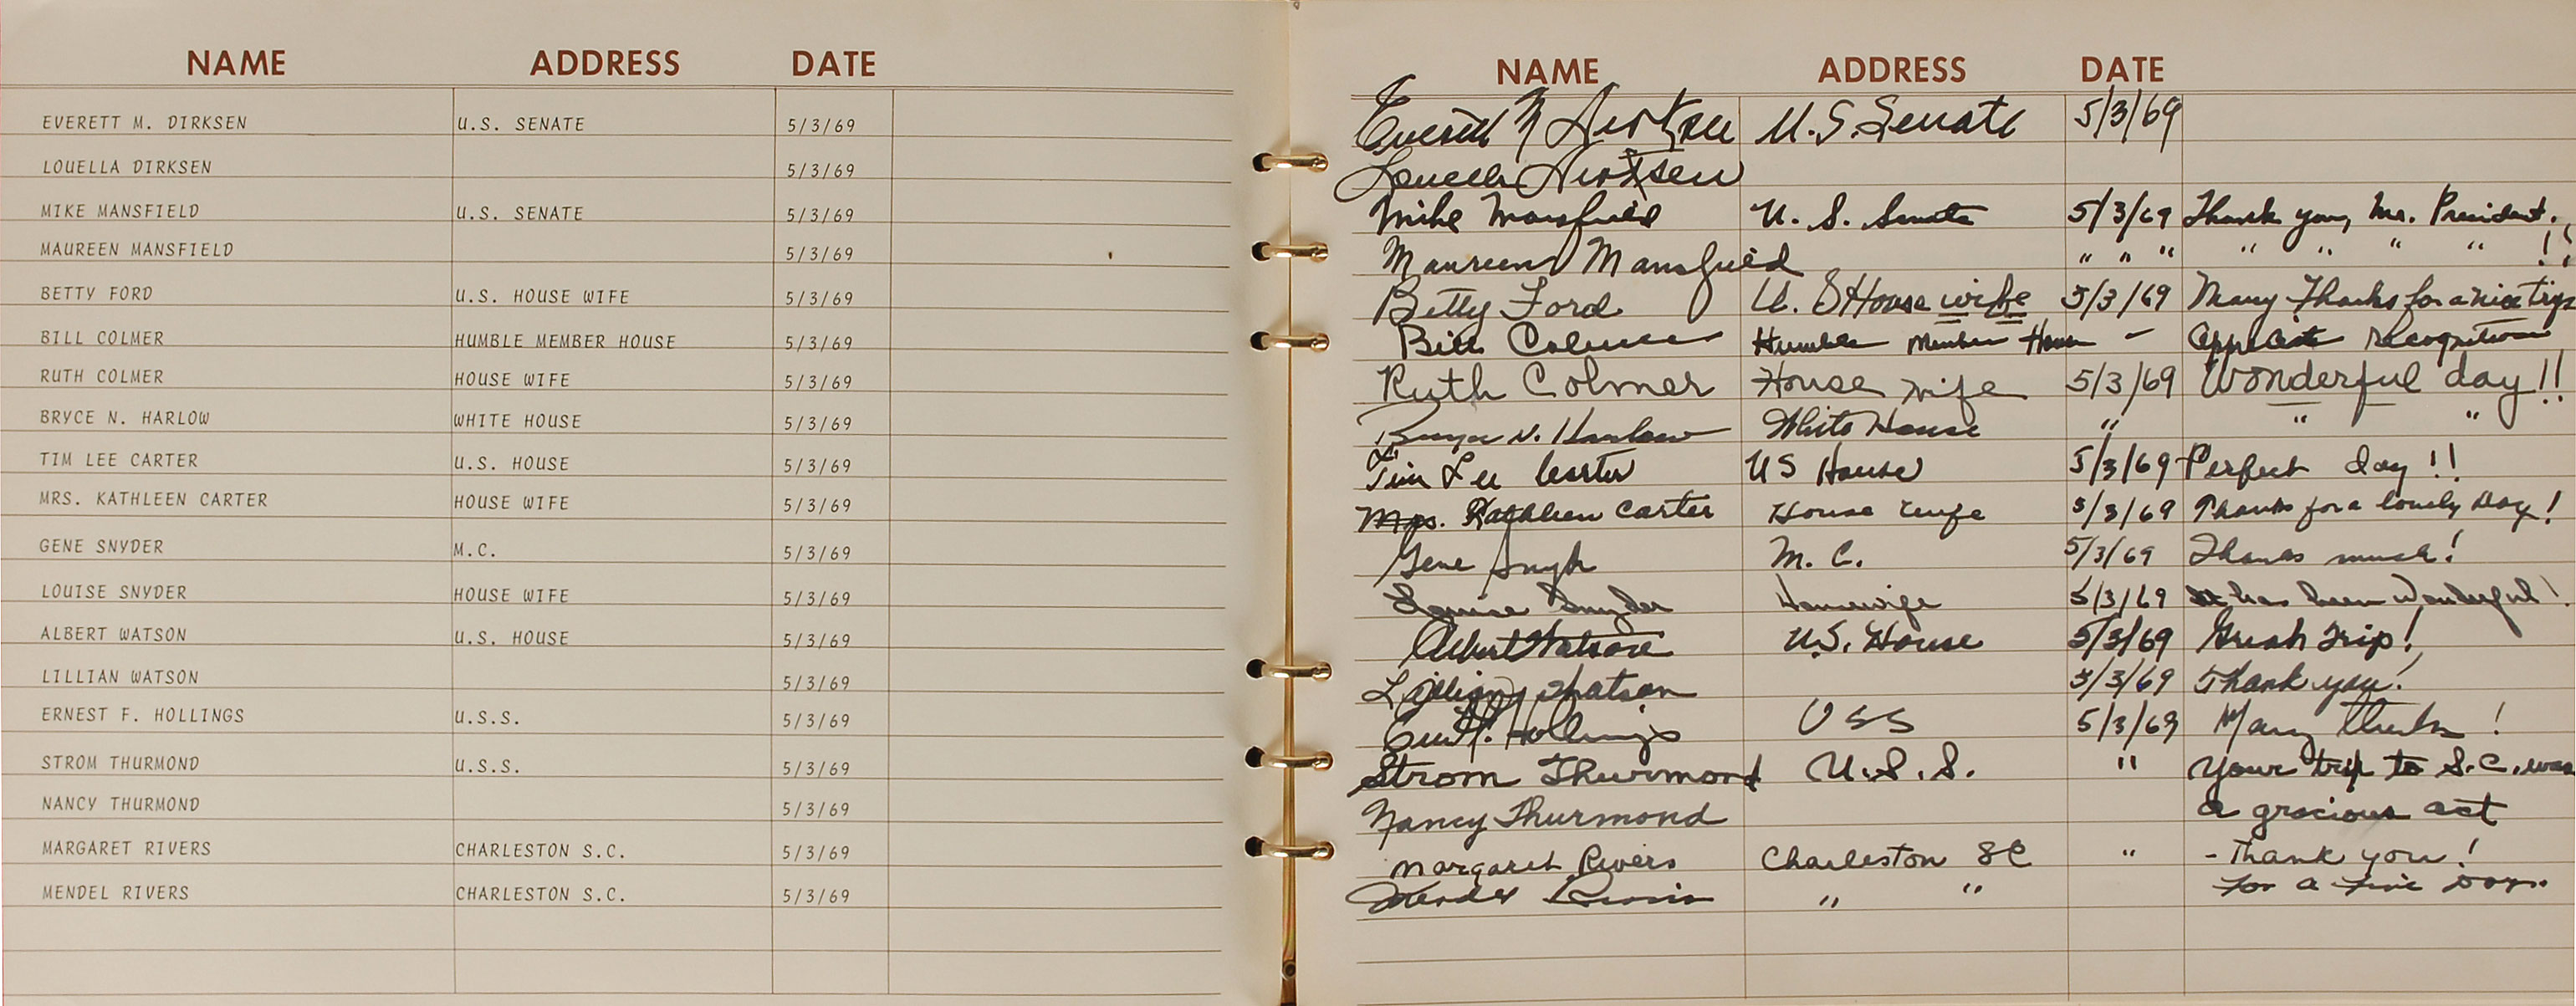 NAME ADDRESS DATE
EVERETT M. DIRKSEN U.S. SENATE 5/3/69
LOUELLA DIRKSEN 5/3/69
MIKE MANSFIELD U.S. SENATE 5/3/69
MAUREEN MANSFIELD 5/3/69
BETTY FORD U.S. HOUSE WIFE 5/3/69
BILL COLMER HUMBLE MEMBER HOUSE 5/3/69
RUTH COLMER HOUSE WIFE 5/3/69
BRYCE N. HARLOW WHITE HOUSE 5/3/69
TIM LEE CARTER U.S. HOUSE 5/3/69
MRS. KATHLEEN CARTER HOUSE WIFE 5/3/69
GENE SNYDER M.C. 5/3/69
LOUISE SNYDER HOUSE WIFE 5/3/69
ALBERT WATSON U.S. HOUSE 5/3/69
LILLIAN WATSON 5/3/69
ERNEST F. HOLLINGS U.S.S. 5/3/69
STROM THURMOND U.S.S. 5/3/69
NANCY THURMOND 5/3/69
MARGARET RIVERS CHARLESTON S.C. 5/3/69
MENDEL RIVERS CHARLESTON S.C. 5/3/69
NAME ADDRESS DATE
Everett M Dirksen U.S. Senate 5/3/69
Louella Dirksen
Mike Mansfield U. S. Senate 5/3/69 Thank you, Mr. President.
Maureen Mansfield " " " " " " " !!
Betty Ford U. S House wife 5/3/69 Many Thanks for a nice trip
Bill Colmer Humble Member House - Recognition
Ruth Colmer House wife 5/3/69 Wonderful day!!
Bryce N. Harlow White House " " "
Tim Lee Carter US House 5/3/69 Perfect day!!
Mrs. Kathleen Carter House wife 5/3/69 Thanks for a lovely day!
Gene Snyder M. C. 5/3/69 Thanks much!
Louise Snyder Housewife 5/3/69 It has been wonderful!
Albert Watson U.S. House 5/3/69 Great Trip!
Lillian Watson 5/3/69 Thank you!
Ernest F. Hollings USS 5/3/69 Many thanks!
Strom Thurmond U.S.S. " Your trip to S.C. was
Nancy Thurmond a gracious act
Margaret Rivers Charleston SC " - Thank you!
Mendel Rivers " " for a fine Day.